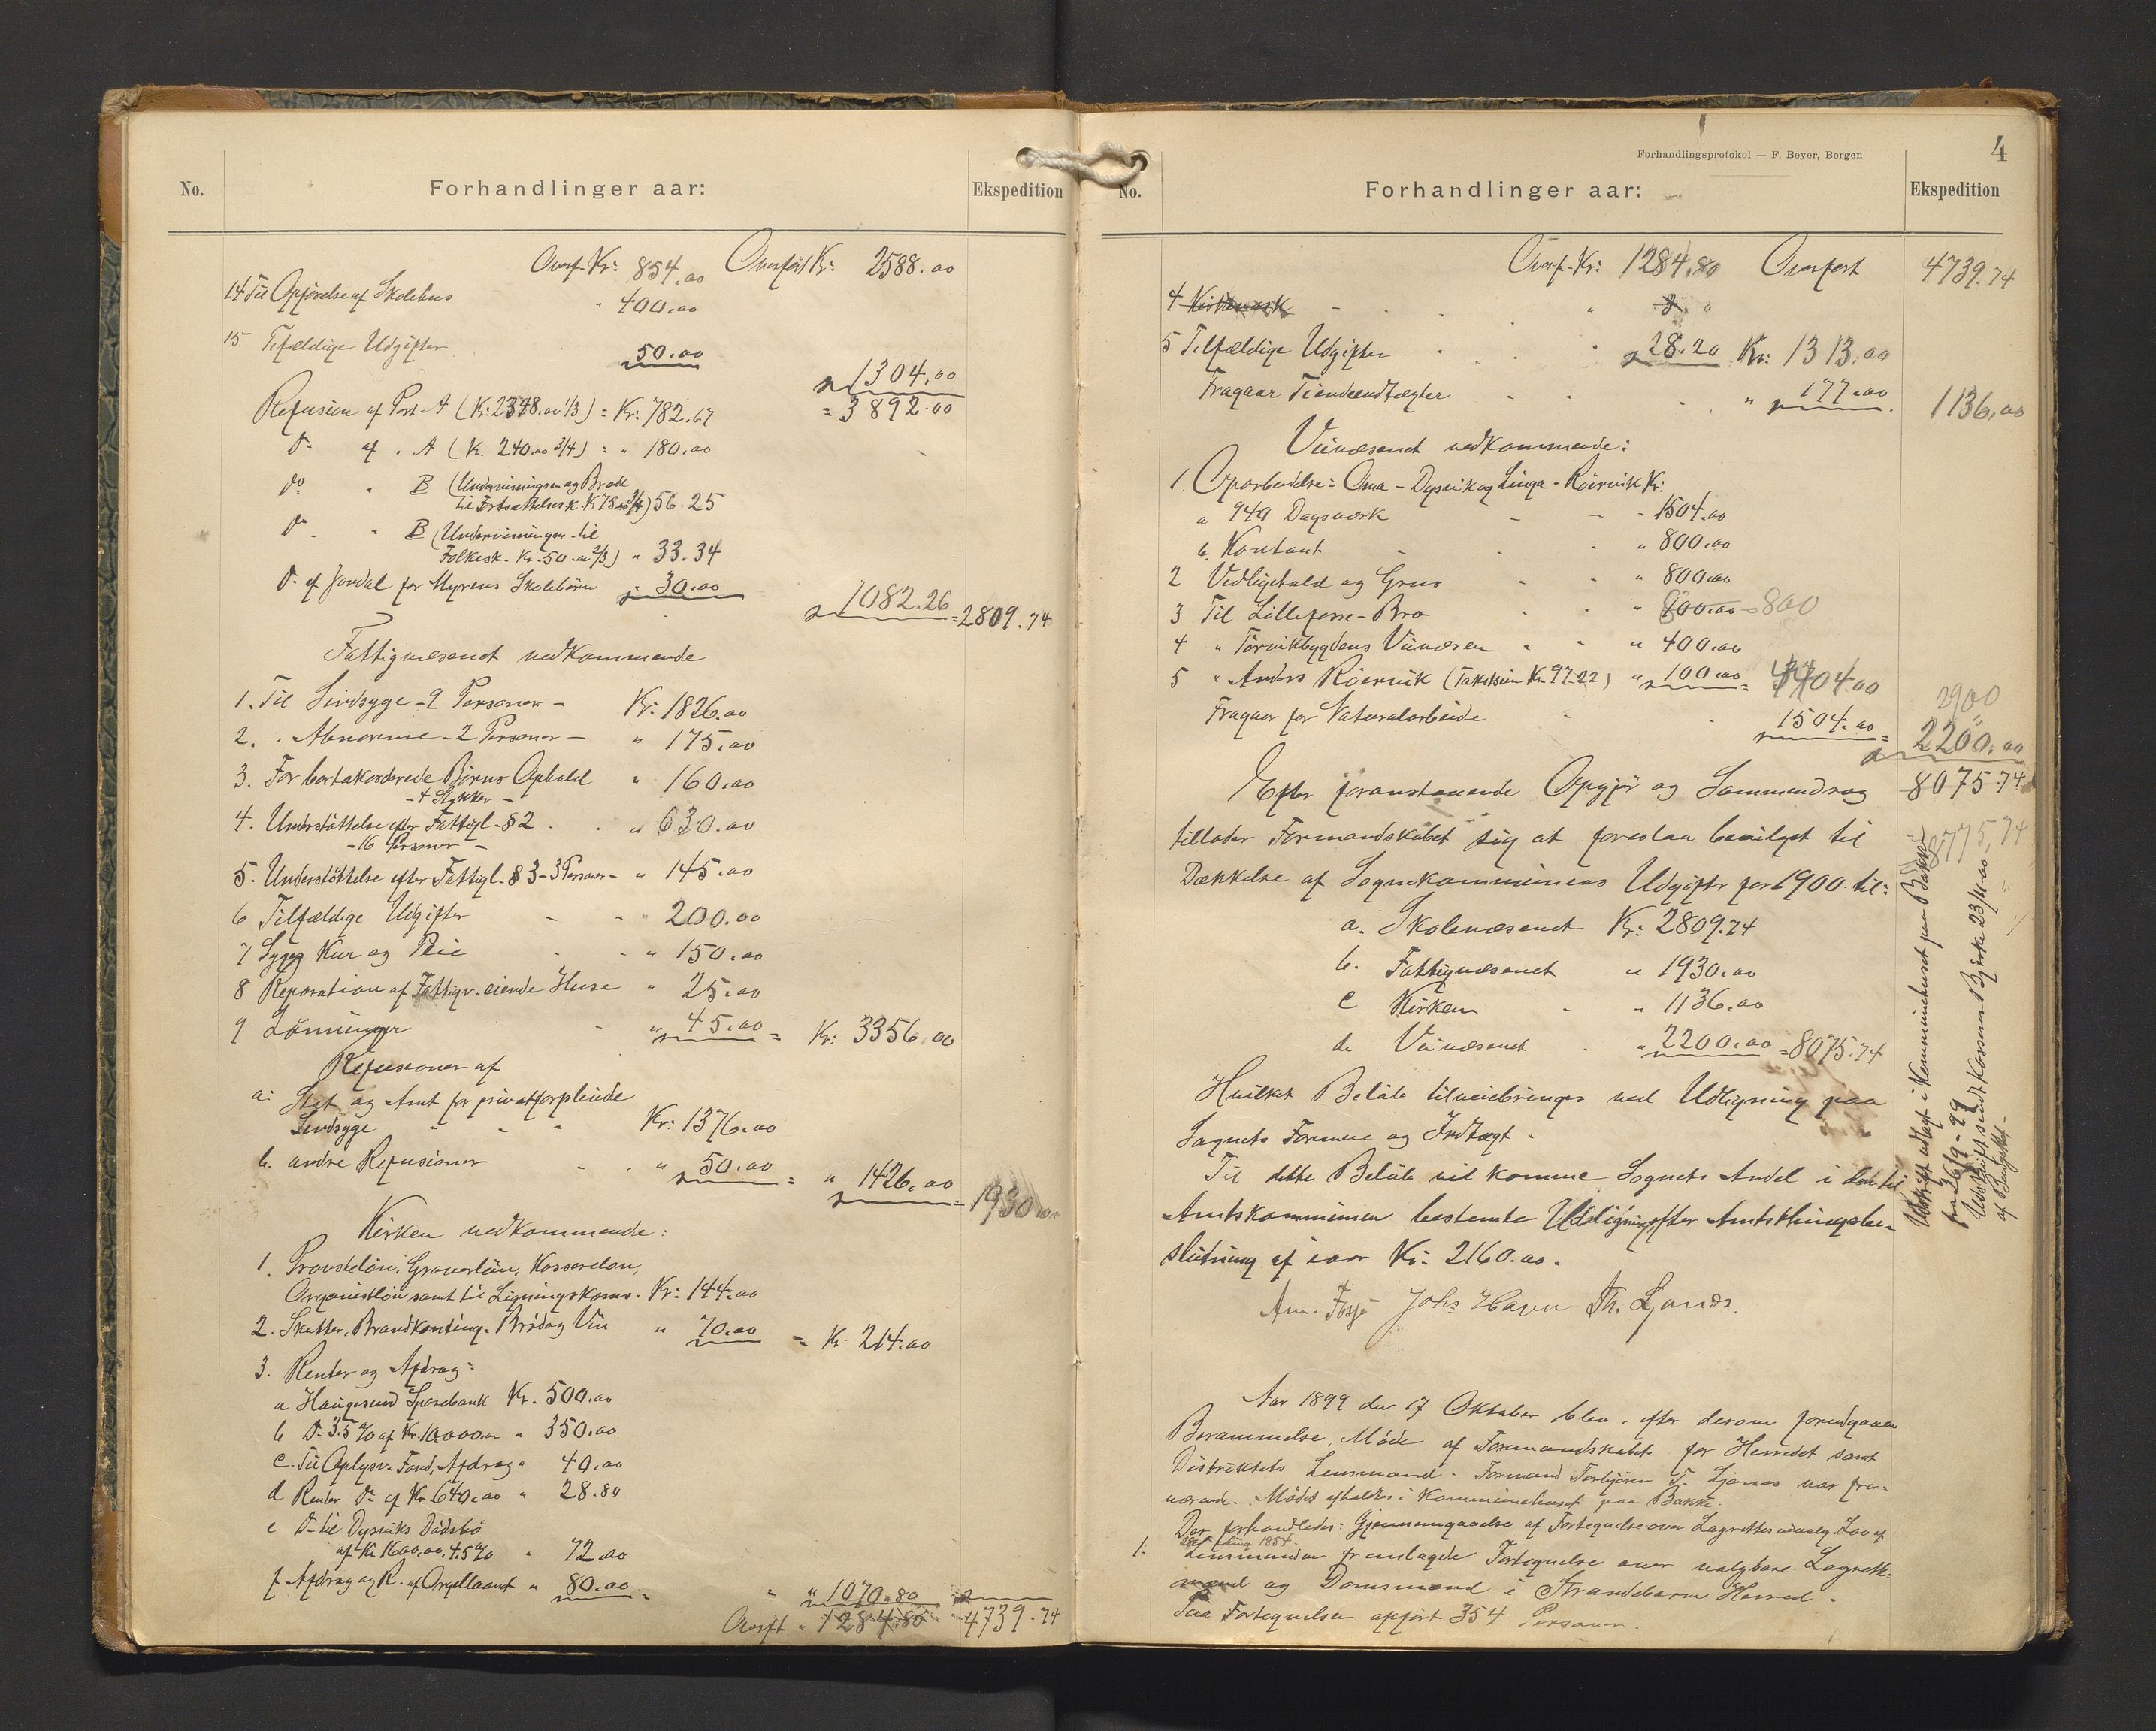 No.
Forhandlinger aar:
Ekspedition
Overf. Kr: 854.00 Overført Kr: 2588.00
14 Til Opførelse af Skolehus " 400.00
15 Tilfældige Udgifter 50.00
" 1304.00
Refusion af Post A (Kr: 2348.00 1/3) = Kr: 782.67 = 3892.00
Do af " A (K. 240.00 3/4) = " 180.00
Do " B (Undervisningen og Brænde
til Fortsættelsesk. K 75.00 3/4) 56.25
Do " B (Undervisningen til
Folkesk. Kr. 50.00 2/3) " 33.34
Do af Jondal for Myrens Skolebørn " 30.00
" 1082.26 = 2809.74
Fattigvæsenet vedkommende
1. Til Sindsyge - 9 Personer - Kr: 1826.00
2. " Abnorme - 2 Personer - " 175.00
3. For bortakorderede Børns Ophold " 160.00
- 4 Stykker -
4. Understøttelse efter Fattigl. § 2 " 630.00
- 16 Personer -
5. Understøttelse efter Fattigl. § 3 - 3 Personer - " 145.00
6 Tilfældige Udgifter " 200.00
7 Syges Kur og Pleie " 150.00
8 Reparation af Fattigv. eiende Huse " 25.00
9 Lønninger " 45.00 = Kr: 3356.00
Refusioner af
a: Stat og Amt for privatforpleiede
Sindsyge Kr: 1376.00
b. andre Refusioner " 50.00 = " 1426.00 = 1930.00
Kirken vedkommende:
1. Provsteløn, Graverløn, Kassereløn,
Organistløn samt til Ligningskoms. Kr: 144.00
2. Skatter, Brandkonting. Brød og Vin " 70.00 = Kr. 214.00
3. Renter og Afdrag:
a Haugesund Sparebank Kr. 500.00
b Do 3.5 % af Kr. 10.000.00 " 350.00
c. Til Oplysn. Fond, Afdrag " 40.00
d Renter Do af Kr. 640.00 " 28.80
e Do til Dysviks Dødsbo
af Kr 1600.00, 4.5 % " 72.00
f Afdrag og R. af Orgellaanet " 80.00 = " 1070.80
Overft " 1284.80 4739.74
Forhandlingsprotokol — F. Beyer, Bergen
4
No.
Forhandlinger aar:
Ekspedition
Overf. Kr: 1284.80 Overført 4739.74
4
5 Tilfældige Udgifter " 28.20 Kr: 1313.00
Fragaar Tiendeindtægter " 177.00 1136.00
Veivæsenet vedkommende:
1. Oparbeidelse: Oma - Dysvik og Linga - Røirvik Kr:
a 940 Dagsværk 1504.00
b. Kontant " 800.00
2 Vedligehold og Grus " 800.00
3 Til Lillefosse-Bro " 100.00 = 800
4 " Tørvikbygdens Veivæsen " 400.00
5 " Anders Røirvik (Takstsum Kr 97.22) " 100.00 = 4404.00
Fragaar for Naturalarbeide 1504.00 =
2900
2200.00
Efter foranstaaende Opgjør og Sammendrag 8075.74
tillader Formandskabet sig at foreslaa bevilget til 8775,74
Dækkelse af Sognekommunens Udgifter for 1900 til:
a. Skolevæsenet Kr: 2809.74
b. Fattigvæsenet " 1930.00
c Kirken " 1136.00
d. Veivæsenet " 2200.00 = 8075.74
Hvilket Beløb tilveiebringes ved Udligning paa
Sognets Formue og Indtægt.
Til dette Beløb vil komme Sognets Andel i den til
Amtskommunen bestemte Udligning efter Amtsthingsbe-
slutning af iaar Kr. 2160.00.
Am. Fosse Johs Haven Th. Ljones.
Udskrift udlagt i Kommunehuset paa Bakke
fra 26/9 - 99
Udskrift sendt Kasserer Bjørke 23/11 00
af Budgettet -
Aar 1899 den 17 Oktober blev, efter derom forudgaaen
Berammelse, Møde af Formandskabet for Herredet samt
Distriktets Lensmand. Formand Torbjørn T. Ljones var fra-
værende. Mødet afholdtes i Kommunehuset paa Bakke.
Der forhandledes: Gjennemgaaelse af Fortegnelse over Lagrettesudvalg. Lov af
1. Lensmanden fremlagde Fortegnelse over valgbare Lagrette-
mænd og Domsmænd i Strandebarm Herred.
Paa Fortegnelsen opført 354 Personer.